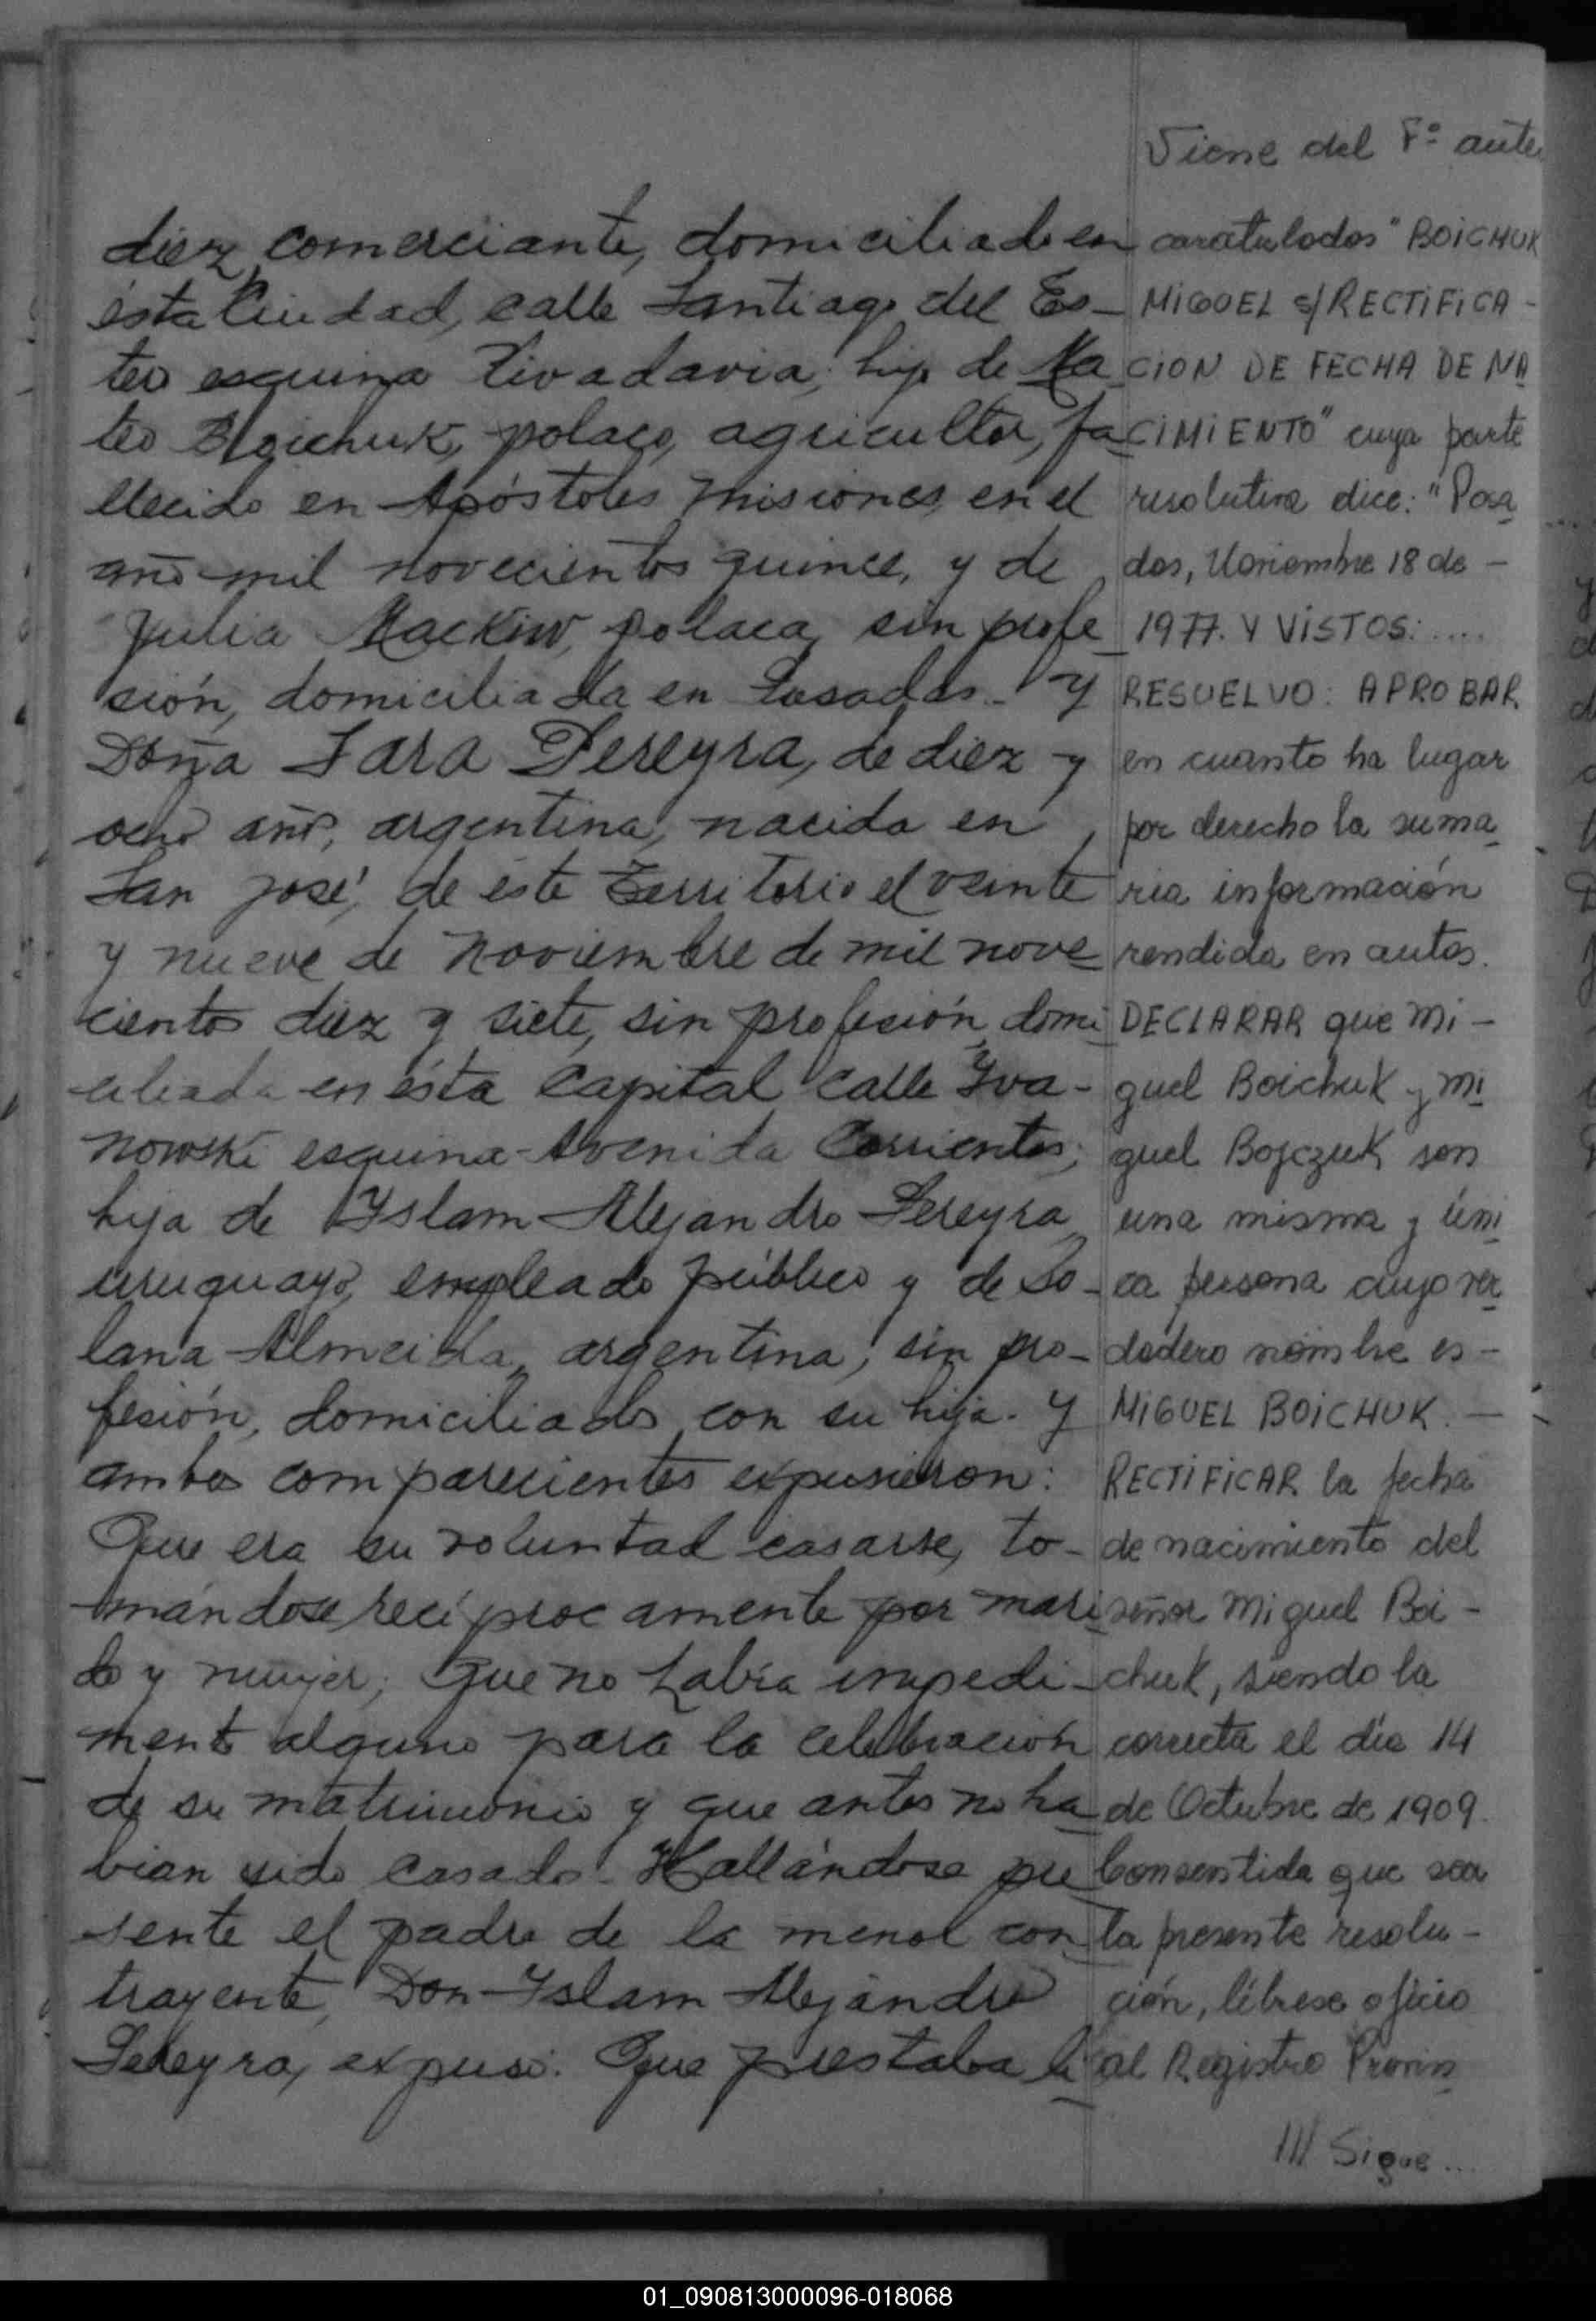 diez, comerciante, domiciliado en
ésta Ciudad, calle Santiago del Es-
tero esquina Rivadavia; hijo de Ma
teo Boichuk, polaco, agricultor, fa
llecido en Apóstoles Misiones, en el
año mil novecientos quince, y de
Julia Mackiw, polaca, sin profe
sión, domiciliada en Posadas.- Y
Doña Sara Pereyra, de diez y
ocho años, argentina, nacida en
San José, de éste Territorio el veinte
y nueve de Noviembre de mil nove
cientos diez y siete, sin profesión, domi
ciliada en ésta Capital calle Iva-
nowski esquina Avenida Corrientes;
hija de Islam Alejandro Pereyra,
uruguayo, empleado público y de So-
lana Almeida, argentina, sin pro-
fesión, domiciliados con su hija.- Y
ambos comparecientes expusieron:
Que era su voluntad casarse, to-
mándose recíprocamente por mari
do y mujer; que no había impedi-
mento alguno para la celebración
de su matrimonio y que antes no ha
bían sido casados.- Hallándose pre
sente el padre de la menor con
trayente, Don Islam Alejandro
Pereyra, expuso: Que prestaba li
Viene del Fº ante
caratulados "BOICHUK
MIGUEL s/RECTIFICA-
CION DE FECHA DE NA
CIMIENTO" cuya parte
resolutiva dice: "Posa
das, Noviembre 18 de -
1977. Y VISTOS: ....
RESUELVO: APROBAR
en cuanto ha lugar
por derecho la suma
ria información
rendida en autos.
DECLARAR que Mi-
guel Boichuk y Mi
guel Bojczuk son
una misma y úni
ca persona cuyo ver
dadero nombre es -
MIGUEL BOICHUK. -
RECTIFICAR la fecha
de nacimiento del
señor Miguel Boi-
chuk, siendo la
correcta el día 14
de Octubre de 1909.
Consentida que sea
la presente resolu-
ción, líbrese oficio
al Registro Provin
/// Sigue ...
01_090813000096-018068